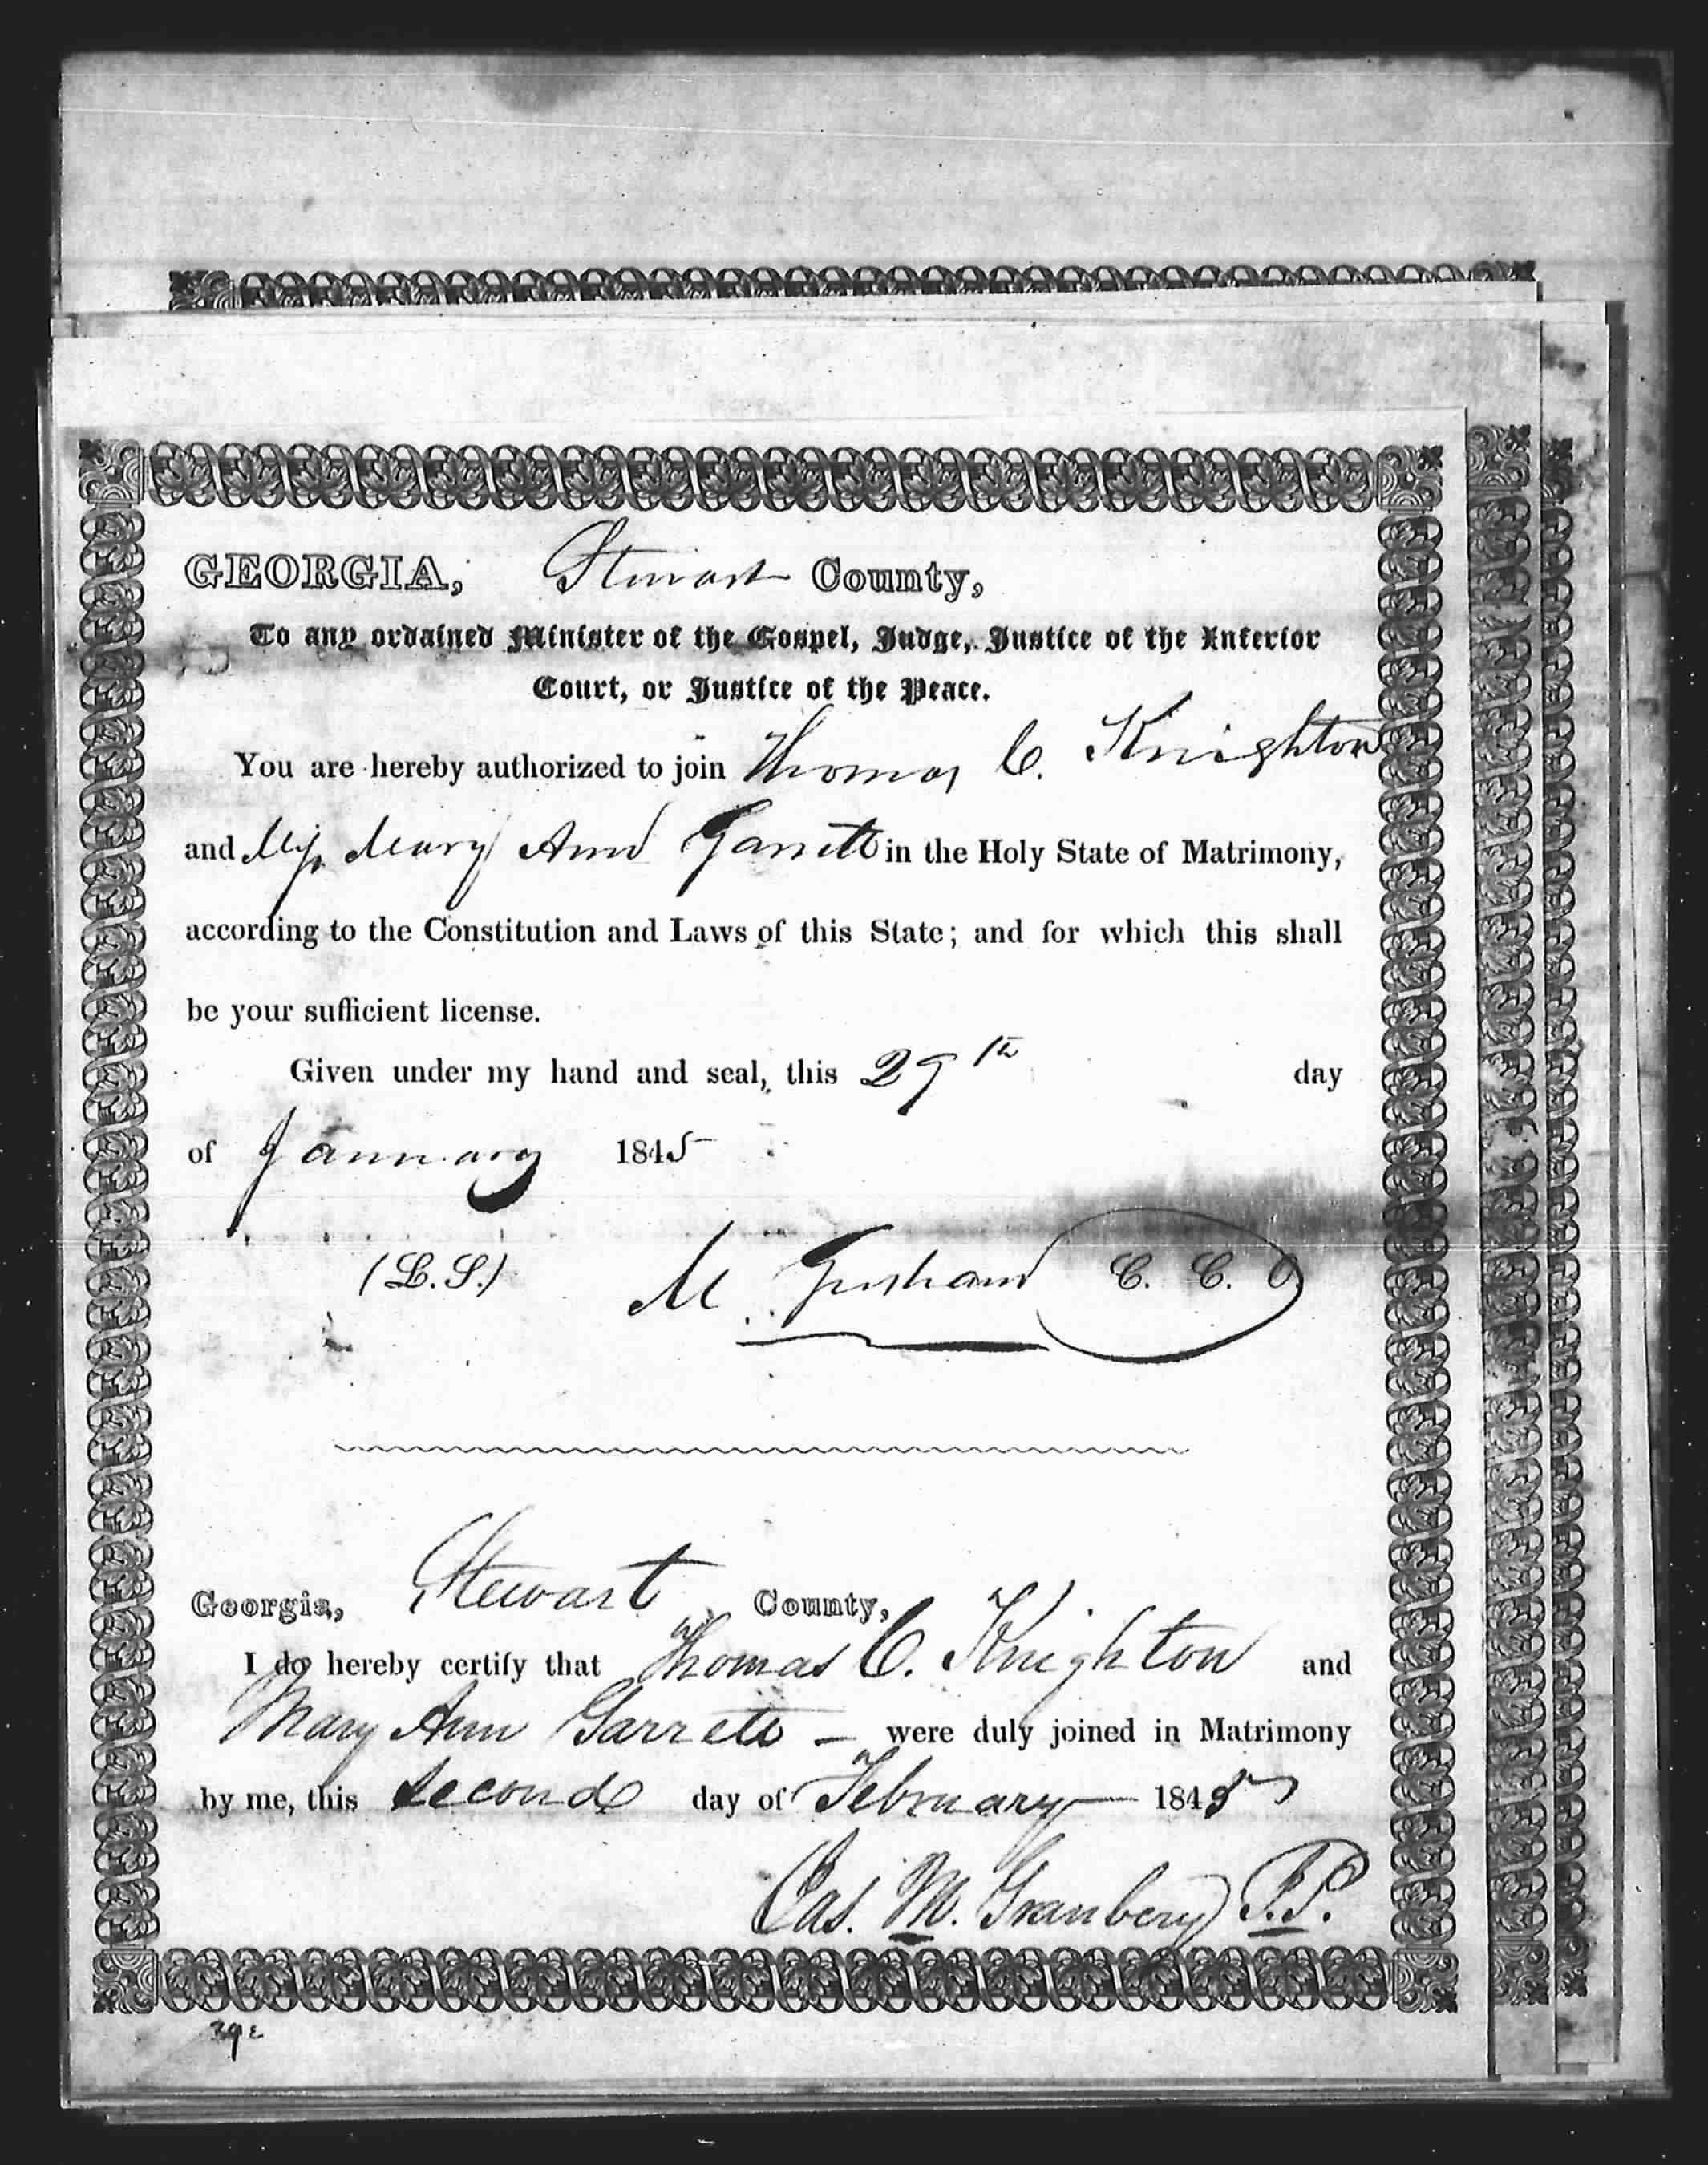 GEORGIA, Stewart County,
To any ordained Minister of the Gospel, Judge, Justice of the Inferior
Court, or Justice of the Peace.
You are hereby authorized to join Thomas C. Knighton
and Miss Mary Ann Garrett in the Holy State of Matrimony,
according to the Constitution and Laws of this State; and for which this shall
be your sufficient license.
Given under my hand and seal, this 29th day
of January 1845
(L.S.) M. Gresham C. C. O.
Georgia, Stewart County,
I do hereby certify that Thomas C. Knighton and
Mary Ann Garrett — were duly joined in Matrimony
by me, this second day of February 1845
Jas. M. Granbery J.P.